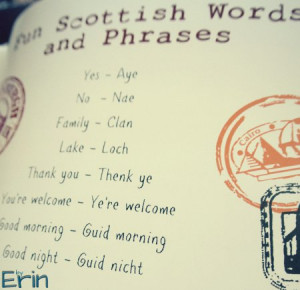 Fun Scottish Words
and Phrases
Yes - Aye
No - Nae
Family - Clan
Lake - Loch
Thank you - Thenk ye
You're welcome - Ye're welcome
Good morning - Guid morning
Good night - Guid nicht
Cairo
by
Erin